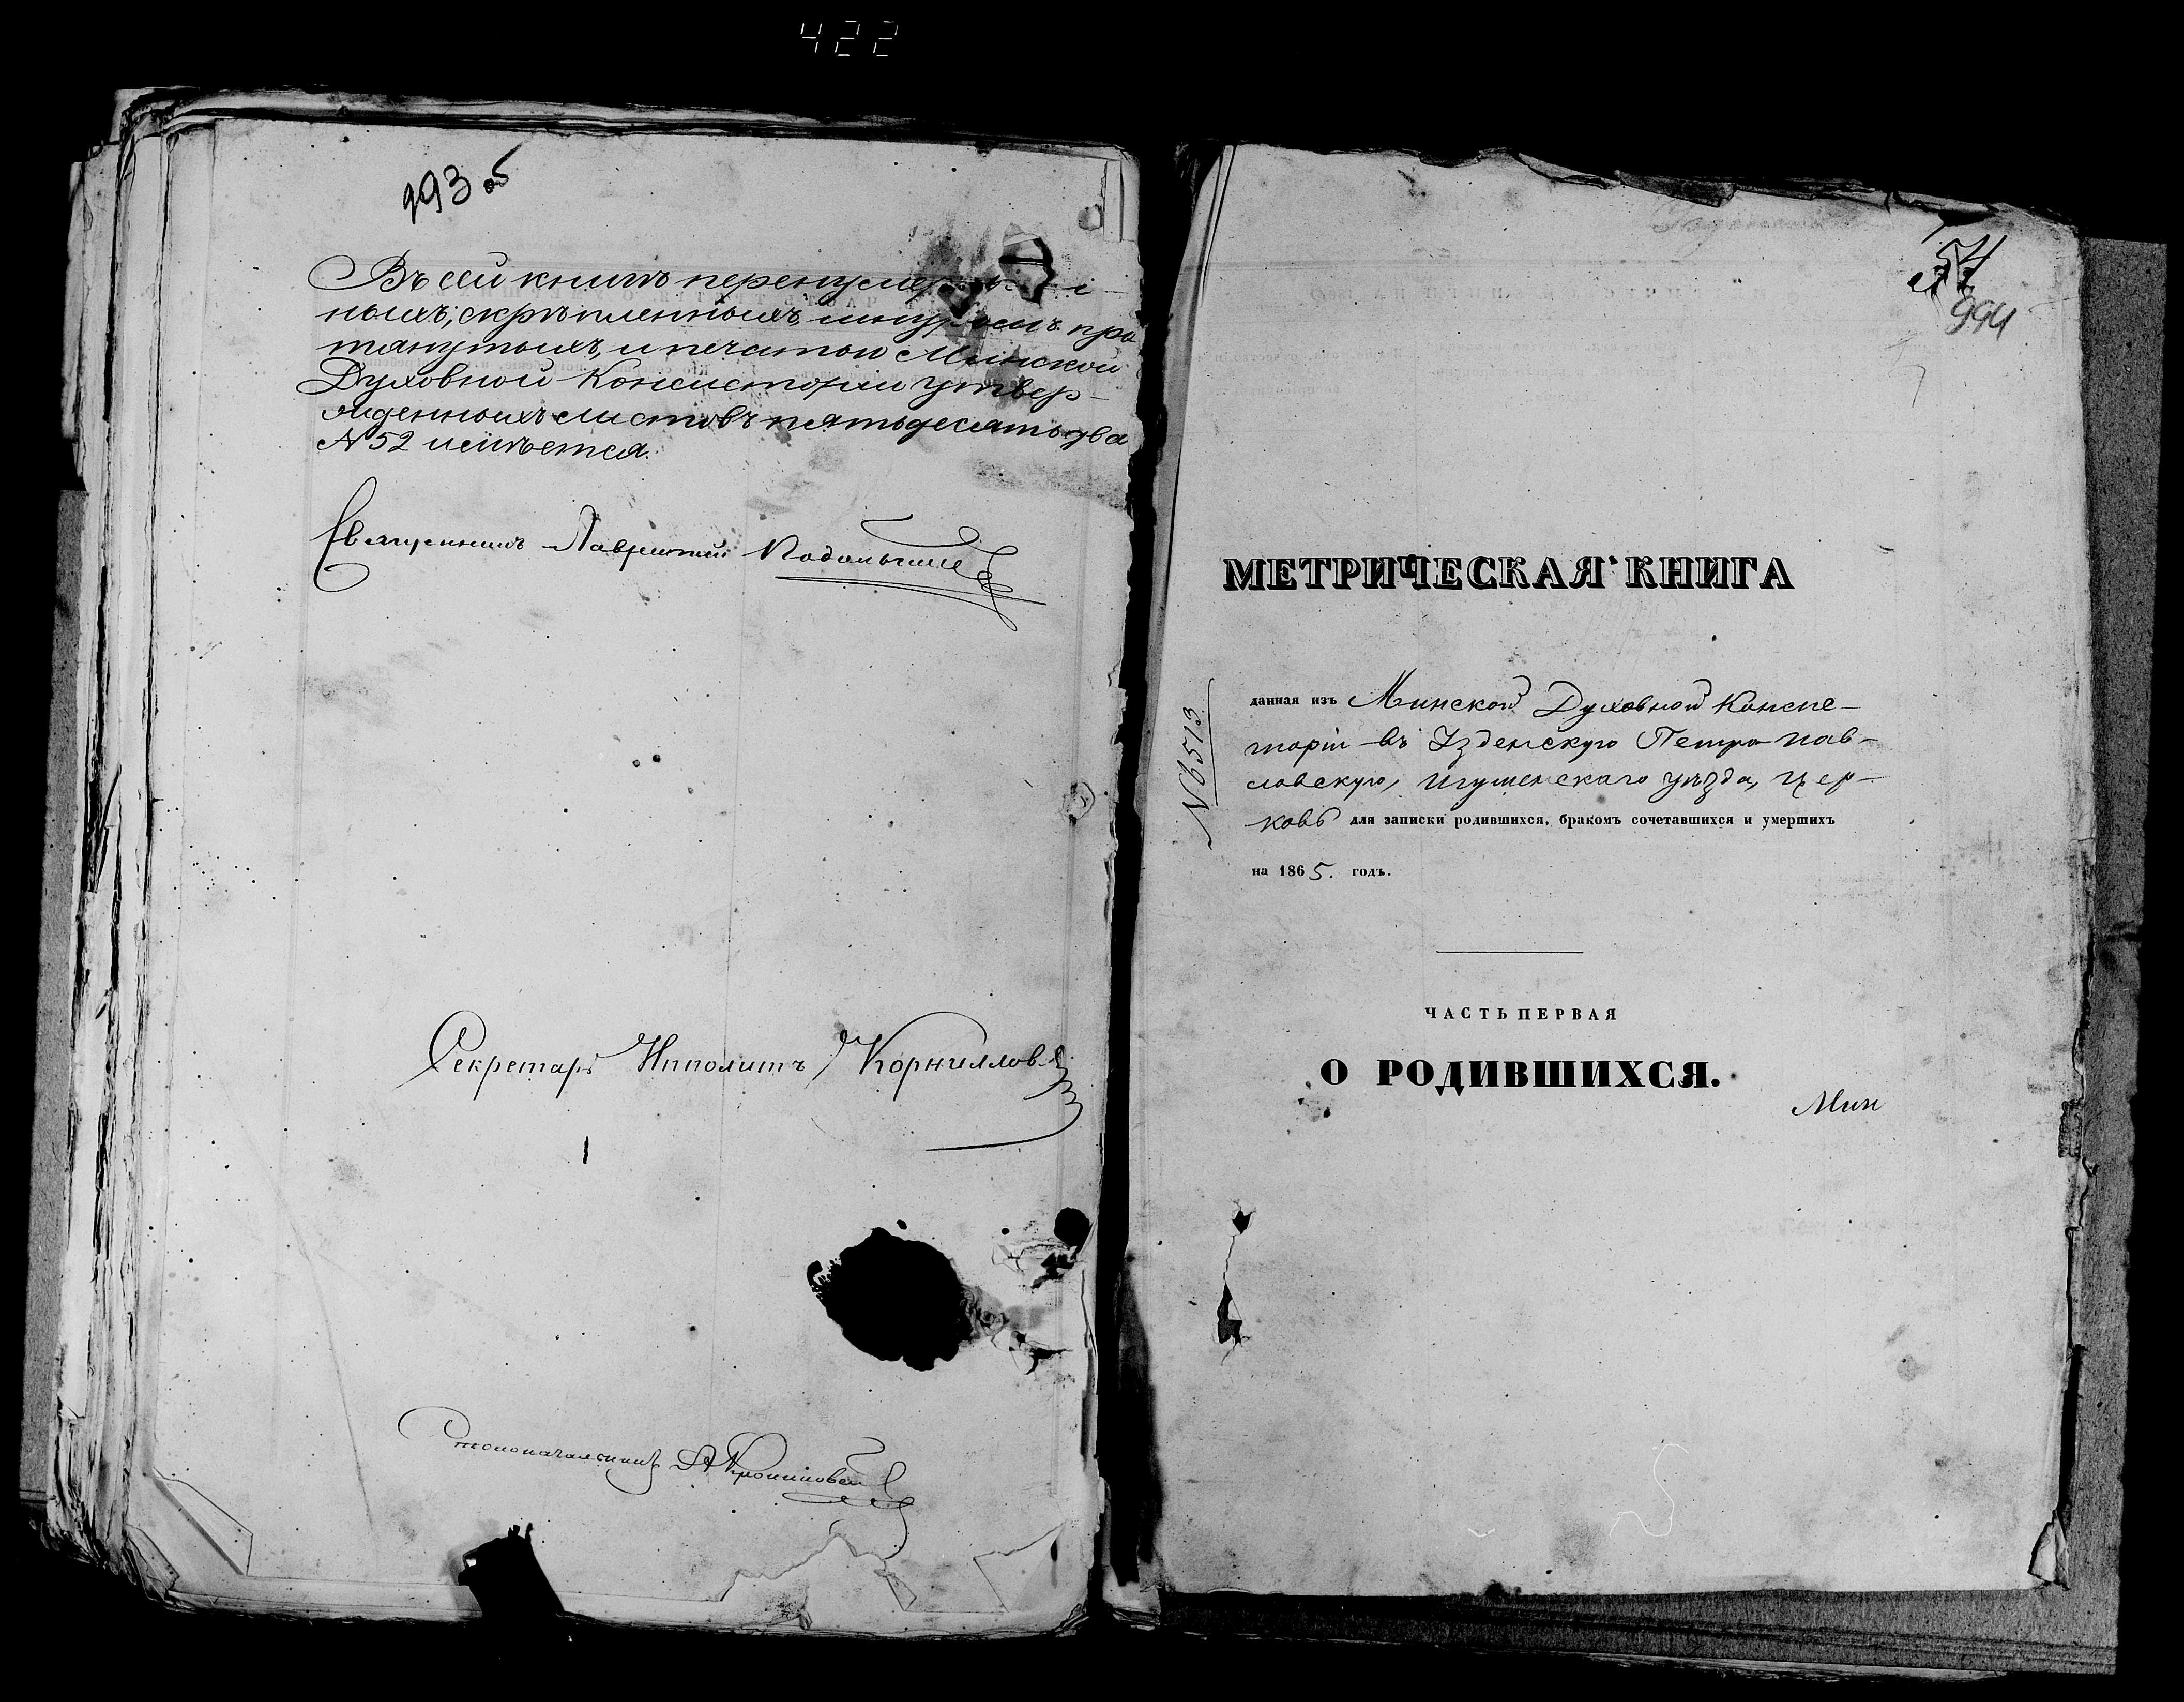 422
993 об
Въ сей книгѣ перенумеро
ныхъ, скрѣпленныхъ, шнуромъ про
тянутыхъ, и печатью Минской
Духовной Консисторіи утвер-
жденныхъ листовъ пятьдесятъ два
N 52 имѣется.
Священникъ Лаврентій
Секретарь Ипполитъ Корниллов
Столоначальникъ
54
994
МЕТРИЧЕСКАЯ КНИГА
N 6513
данная изъ Минской Духовной Консис-
торіи въ Узденскую Петропав-
ловскую, Игуменскаго уѣзда, цер-
ковь для записки родившихся, бракомъ сочетавшихся и умершихъ
на 1865. годъ.
ЧАСТЬ ПЕРВАЯ
О РОДИВШИХСЯ.
Мин